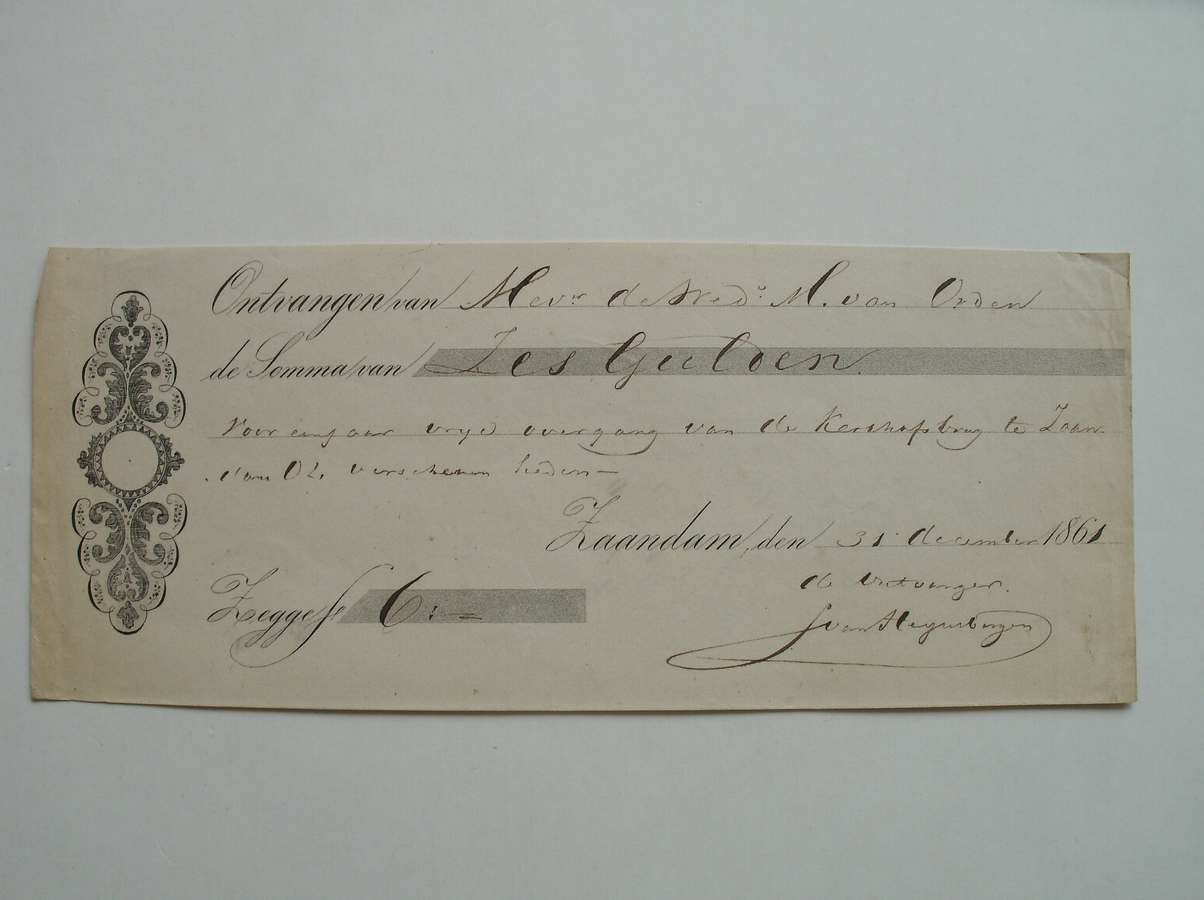 Ontvangen van Mevr de Wed: M. van Orden
de Somma van Zes Gulden.
Voor een jaar vrye overgang van de Kerkhofsbrug te Zaan
dam O Z. verschenen heden —
Zaandam, den 31 december 1861
de Ontvanger.
Zegge f 6:—
J van